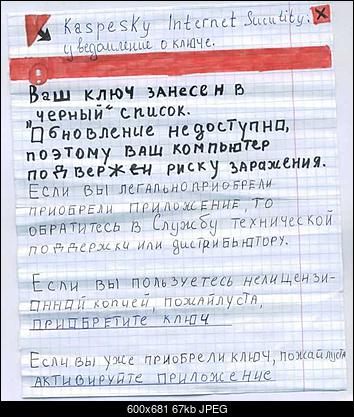 Kaspesky Internet Sucutity.
уведомление о ключе.
Ваш ключ занесен в
"черный" список.
Обновление недоступно,
поэтому ваш компьютер
подвержен риску заражения.
Если вы легально приобрели
приобрели приложение, то
обратитесь в Службу технической
поддержки или дистрибьютору.
Если вы пользуетесь нелицензи-
онной копией, пожалуйста,
приобретите ключ
Если вы уже приобрели ключ, пожалуйста
активируйте приложение
600x681 67kb JPEG